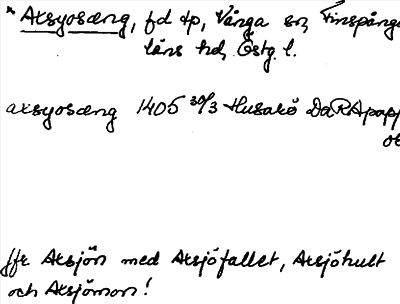 * Axsyosæng, fd tp, Vånga sn, Finspånga
läns hd, Östg. l.
axsyosæng 1405 30/3 Husarö DaRApapp
or
Jfr Axsjön med Axsjöfallet, Axsjöhult
och Axsjömon!